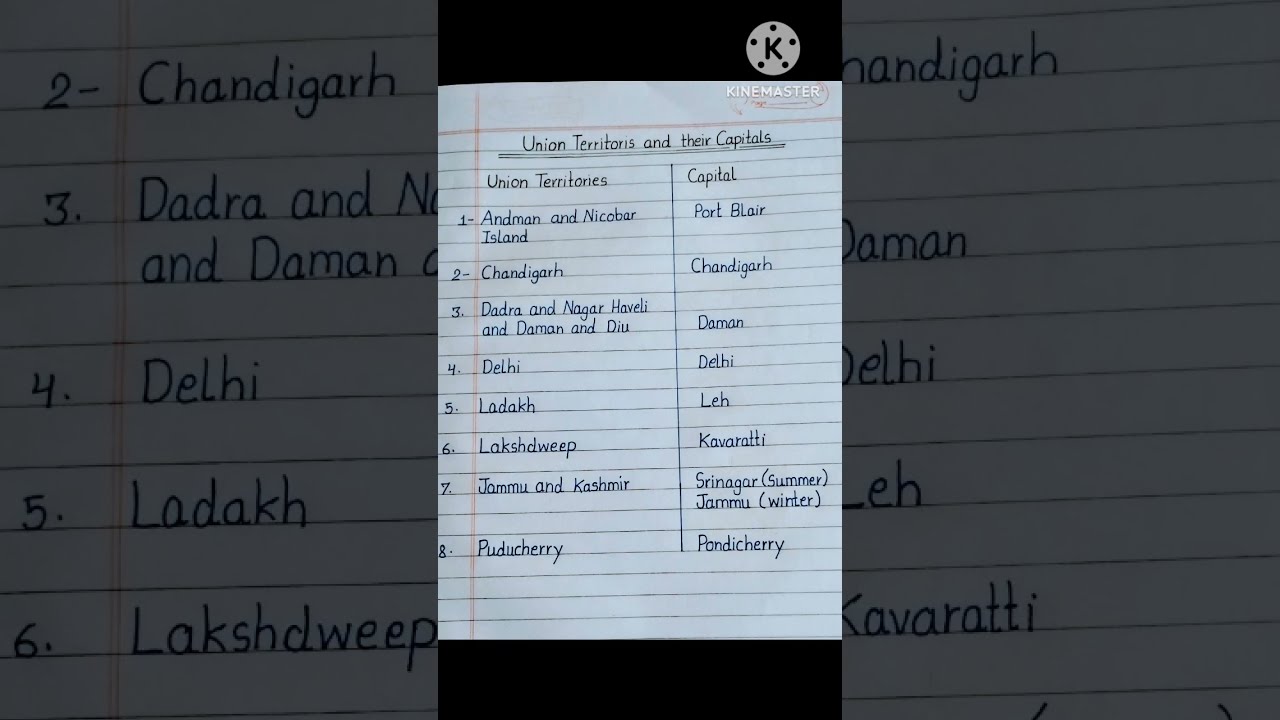 K
KINEMASTER
Union Territoris and their Capitals
Union Territories Capital
1- Andman and Nicobar Port Blair
Island
2- Chandigarh Chandigarh
3. Dadra and Nagar Haveli
and Daman and Diu Daman
4. Delhi Delhi
5. Ladakh Leh
6. Lakshdweep Kavaratti
7. Jammu and Kashmir Srinagar (Summer)
Jammu (winter)
8. Puducherry Pondicherry
2- Chandigarh
3. Dadra and
and Daman
4. Delhi
5. Ladakh
6. Lakshdweep
handigarh
Daman
Delhi
Leh
Kavaratti